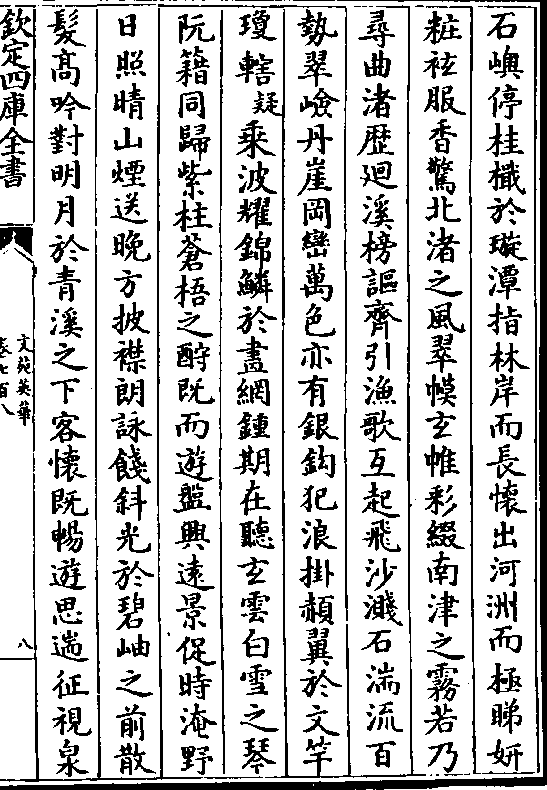 石嶼停桂檝於璇潭指林岸而長懷出河洲而極睇妍
粧袨服香驚北渚之風翠幙玄帷彩綴南津之霧若乃
尋曲渚歴迴溪榜謳齊引漁歌互起飛沙濺石湍流百
勢翠嶮丹崖岡巒萬色亦有銀鈎犯浪掛頳翼於文竿
瓊轄疑乗波耀錦鱗於畫網鍾期在聽玄雲白雪之琴
阮籍同歸紫桂蒼梧之酧既而遊盤興逺景促時淹野
日照晴山煙送晚方披襟朗詠餞斜光於碧岫之前散
髮髙吟對明月於青溪之下客懷既暢遊思遄征視泉
欽定四庫全書
文苑英華
卷七百八
八